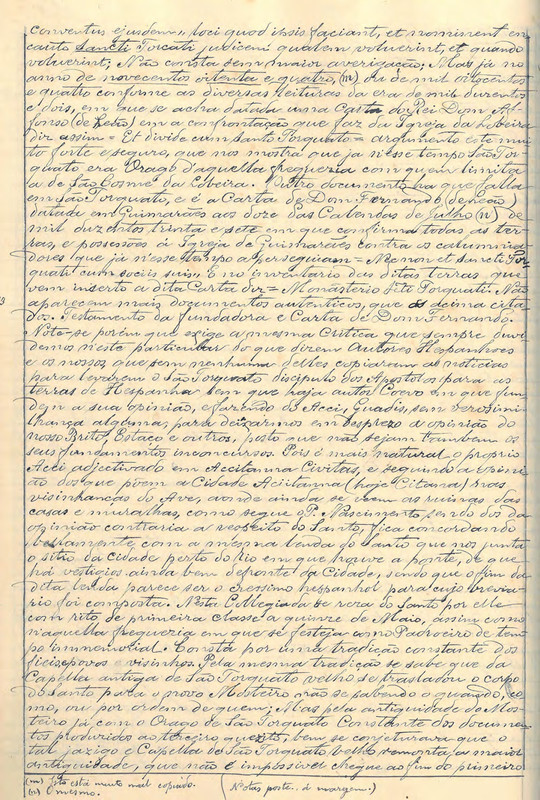 conventus ejusdem, loci quod ipsis faciant, et nominent in
cauto Sancti Torcati judicem qualem voluerint, et quando
voluerint; Não consta sem maior averigação; Mas já no
anno de novecentos oitenta e quatro, (m) ou de mil oitocentos
e quatro conforme as diversas leituras da era de mil duzentos
e dois, em que se acha datada uma Carta do Rei Dom Af-
fonso (de Leão) em a confrontação que faz da Igreja da Lobeira
diz assim = Et divide cum Santo Torquato = argumento este mui-
to forte e seguro, que nos mostra que já n'esse tempo São Tor-
quato era Orago d'aquella freguezia com quem limita
a de São Cosme da Lobeira. Outro documento ha que falla
em São Torquato, e é a Carta de Dom Fernando (de Leão)
datada em Guimarães aos doze das Calendas de Julho (n) de
mil duzentos trinta e sete em que confirma todas as ter-
ras, e possessões á Igreja de Guimarães contra os calumnia-
dores que já n'esse tempo a perseguiam = Menon et Sancti Tor-
quati cum sociis suis,, E no inventario das ditas terras que
vem inserto a dita Carta diz = Monasterio Sti Torquati. Não
aparecem mais documentos autenticos, que os acima cita-
dos. Testamento da fundadora e Carta de Dom Fernando.
Note-se porém que exige a mesma Critica que sempre duvi-
demos n'este particular do que dizem Autores Hespanhoes
e os nossos, que sem nenhuma delles copiaram as noticias
para levarem o São Torquato discipulo dos Apostolos para as
terras de Hespanha sem que haja autor Coevo em que fun-
dem a sua opinião, e fazendo do Acci, Guadis, sem verosimi-
lhança alguma, para deixarmos em desprezo a opinião do
nosso Brito, Estaço e outros, posto que não sejam tambem os
seus fundamentos inconcursos. Pois é mais natural o proprio
Acci adjectivado em Accitanna Civitas, e seguindo a opini-
ão dos que põem a Cidade Aciitanna (hoje Citania) nas
visinhanças do Ave, aonde ainda se veem as ruinas das
casas e muralhas, como segue o P. Nascimento sendo dos da
opinião contraria a respeito do Santo, fica concordando
bellamente com a mesma lenda do Santo que nos pinta
o sitio da Cidade perto do rio em que houve a ponte, de que
ha vestigios ainda bem defronte da Cidade, sendo que o fim da
dita lenda parece ser o cressimo hespanhol para cujo brevia-
rio foi composta. Nesta Collegiada se reza do Santo por elle
com rito de primeira classe a quinze de Maio, assim como
n'aquella freguezia em que se festeja como Padroeiro de tem-
po immemorial. Consta por uma tradição constante dos
visinhos. Pela mesma tradição se sabe que da
Capella antiga de São Torquato velho se trasladou o corpo
do Santo para o novo Mosteiro não se sabendo o quando, (co-
mo, ou por ordem de quem; Mas pela antiguidade do Mos-
teiro já com o Orago de São Torquato Constante dos documen-
tos produzidos ao terceiro quesito, bem se conjeturava que o
tal jazigo e Capella de São Torquato velho remonta a maior
antiguidade, que não é impossivel chegue ao fim do primeiro
(m) Isto está muito mal copiado.
(n) o mesmo.
(Notas poste. á margem.)